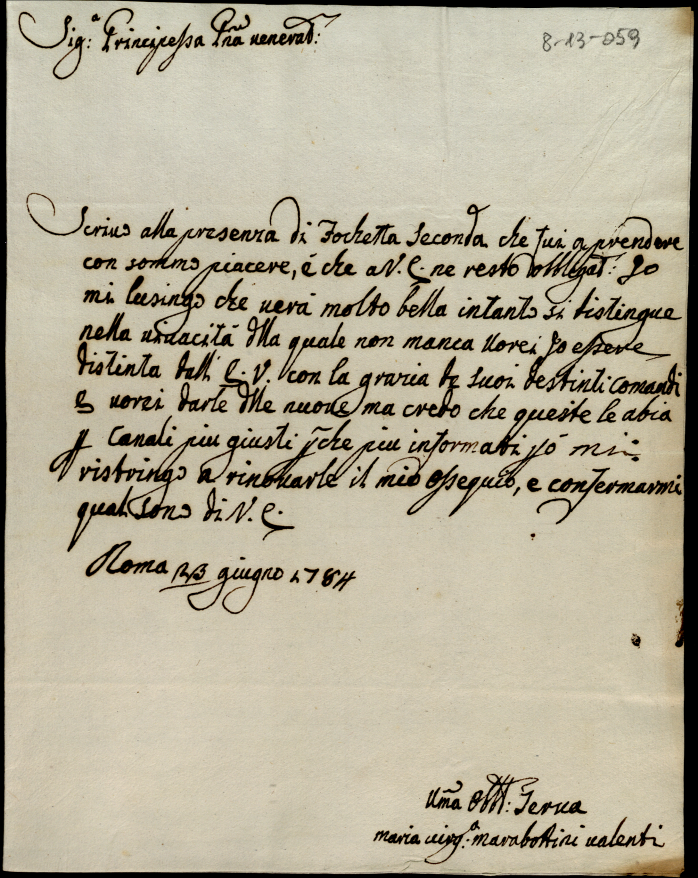 Sig:ª Principessa Pña venerat:
8-13-059
Scrivo alla presenza di Fochetta seconda che fui a prendere
con sommo piacere, é che a V. E. ne resto obbligat: Jo
mi lusingo che verá molto bella intanto si distingue
nella vivacitá dlla quale non manca vorei Jo essere
distinta dall' E. V. con la grazia de suoi destinti comandi
e vorei darle dlle nuove ma credo che queste le abia
p canali piu giusti pche piu informati jó mi
ristringo a rinovarle il mio ossequio, e confermarmi
qual sono di V. E.
Roma 23 giugno 1784
Uma Obbl: Serva
maria virg:ª marabottini valenti